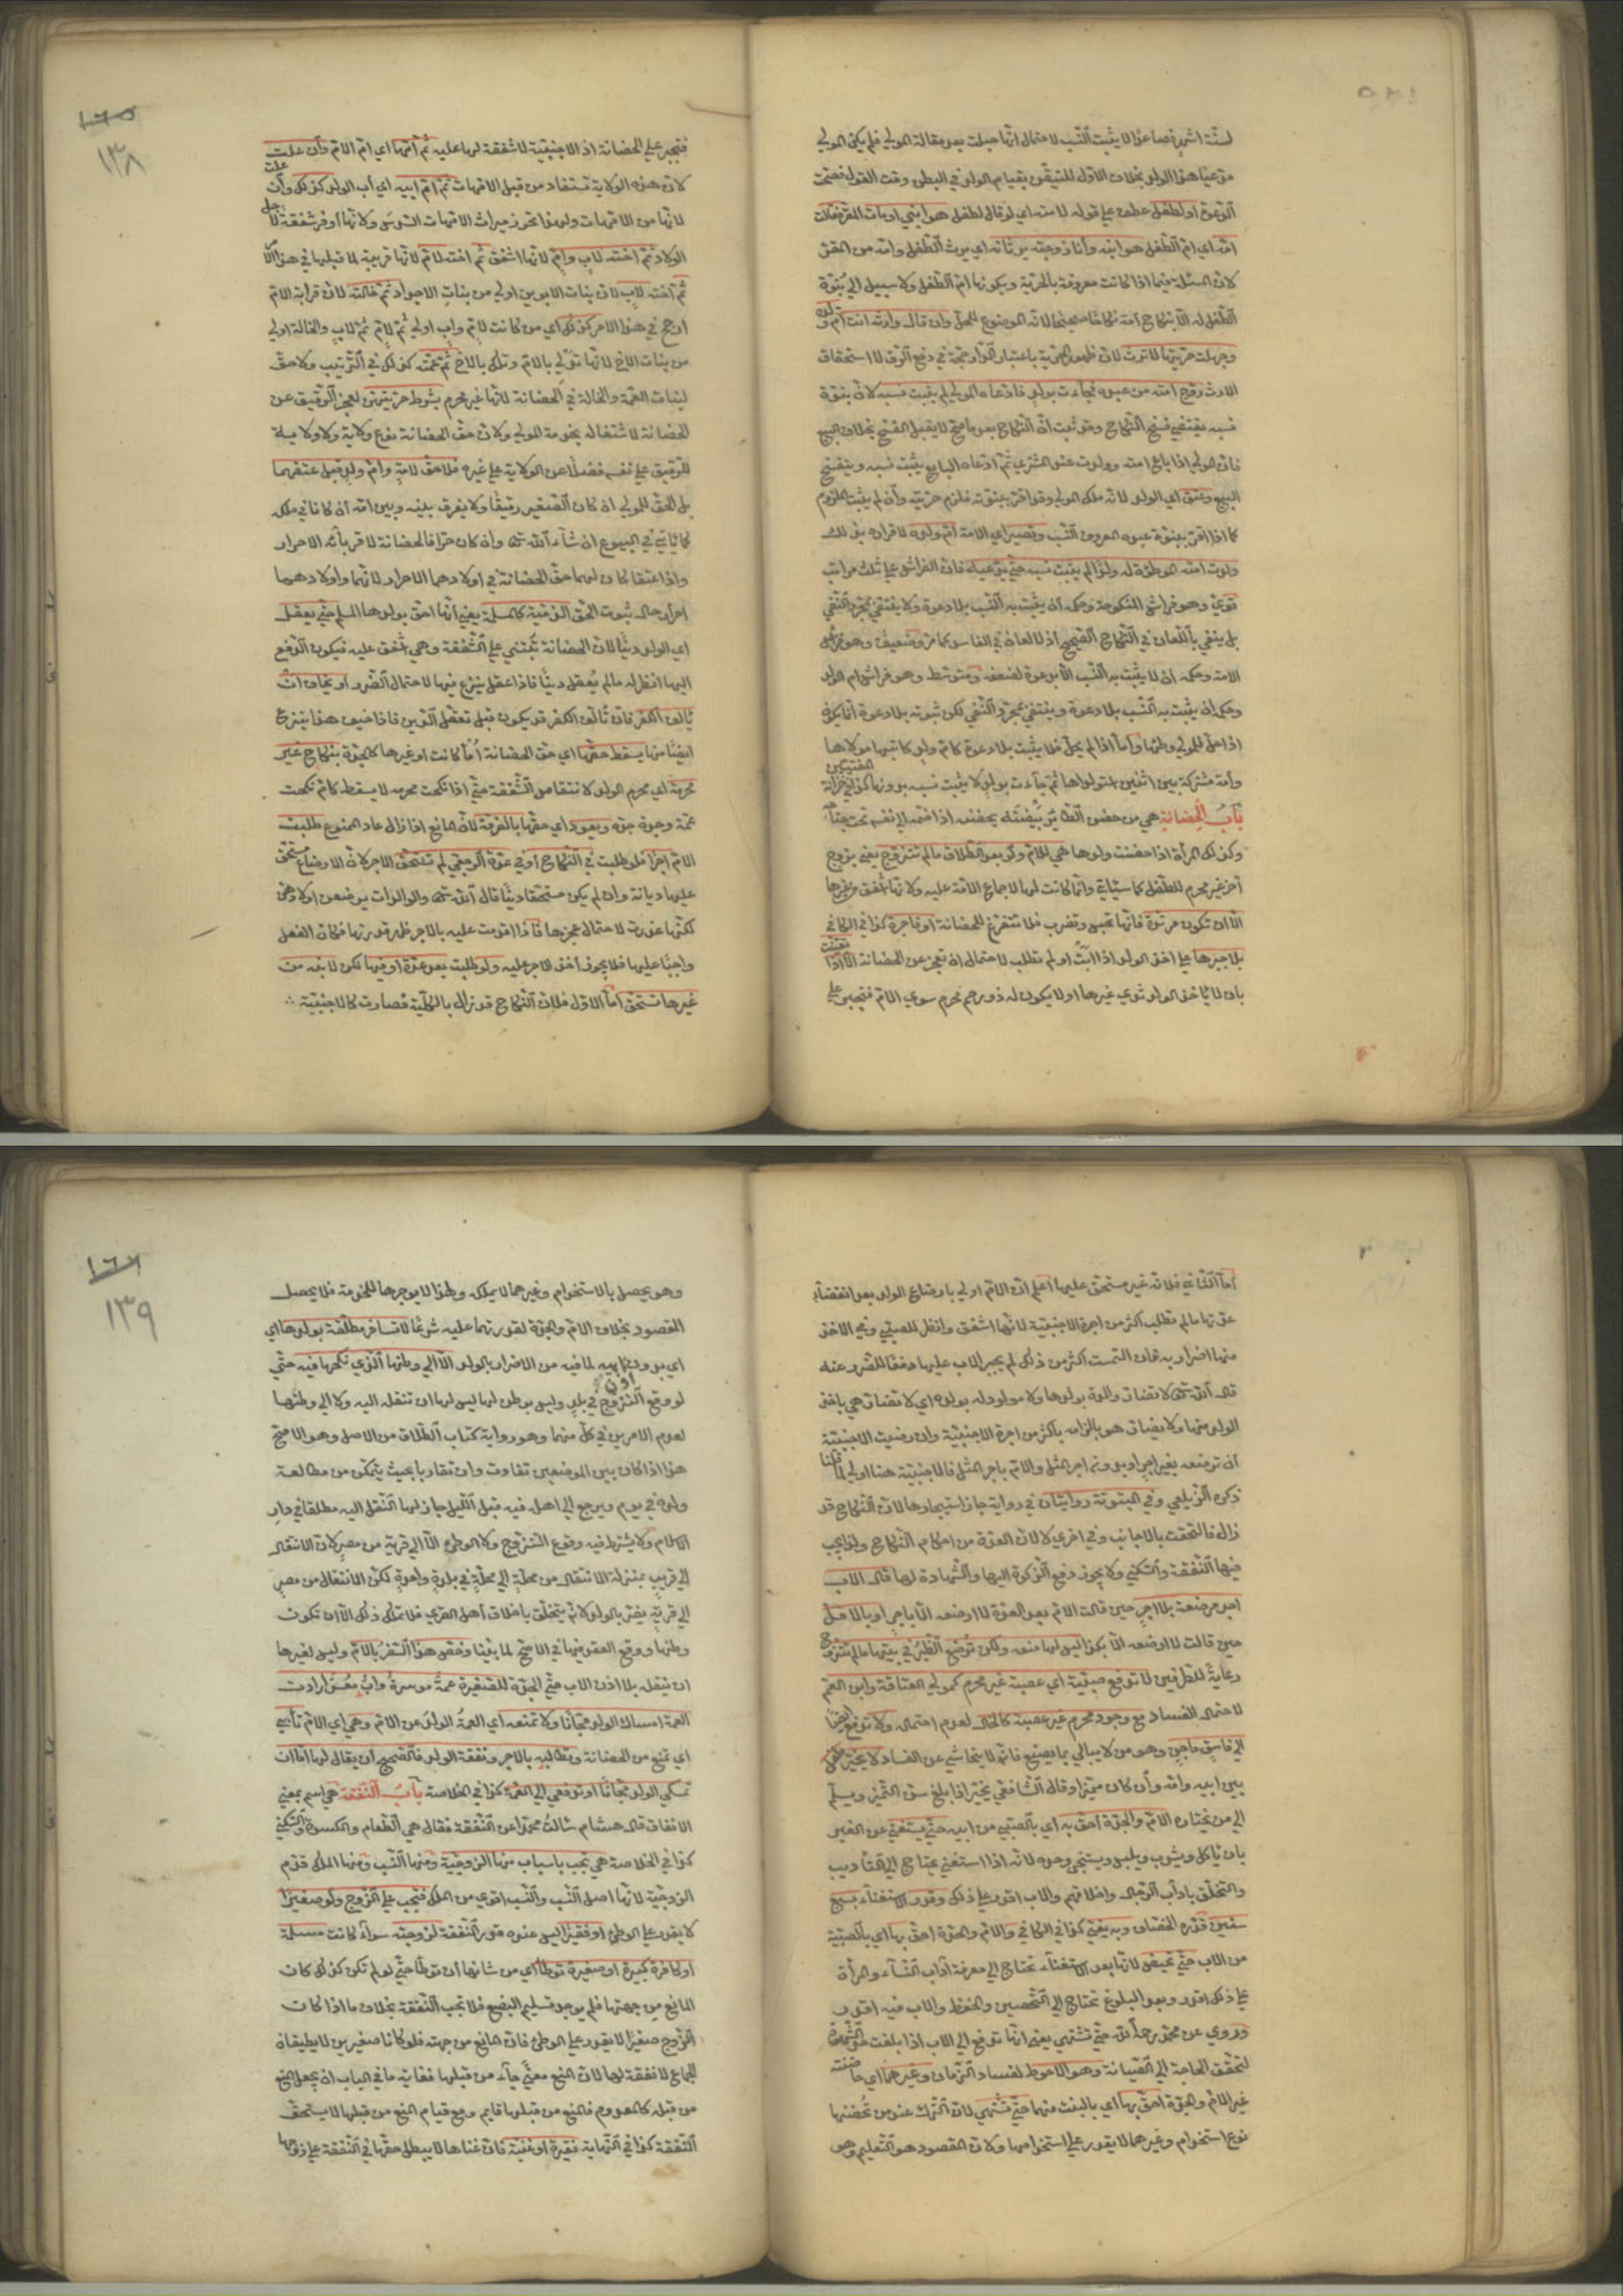 لستة اشهر فصاعدًا لا يثبت النسب لاحتمال انها حبلت بعد مقالة المولى فلم يكن المولى
مدعيا هذا الولد بخلاف الاول للتيقن بقيام الولد في البطن وقت القول فصحت
الدعوة او لطفل عطف على قوله لامته اي لو قال لطفل هو ابني او مات المقر فقالت
امه اي ام الطفل هو ابنه وأنا زوجته يرثانه اي يرث الطفل وامه من المقر
لان المسئلة فيما اذا كانت معروفة بالحرية وبكونها ام الطفل ولا سبيل الى بنوة
الطفل له الا بنكاح امه نكاحا صحيحا لانه الموضوع للحل وان قال وارثه انت ام ولده
وجهلت حريتها لا ترث لان ظهور الحرية باعتبار الدار حجة في دفع الرق لا استحقاق
الارث زوج امته من عبده فجاءت بولد فادعاه المولى لم يثبت نسبه لان بنوة
نسبه يقتضي فسخ النكاح وقد ثبت ان النكاح بعد ما صح لا يقبل الفسخ بخلاف البيع
فان المولى اذا باع امته وولدت عند المشتري ثم ادعاه البايع يثبت نسبه وينفسخ
البيع وعتق اي الولد لانه ملك المولى وقد اقر ببنوته فلزم حريته وأن لم يثبت الملزوم
كما اذا اقر ببنوة عبده المعروف النسب وتصير اي الامة ام ولده لاقراره بذلك
ولدت امته الموطوءة له ولدًا لم يثبت نسبه حتى يدعيه فان الفراش على ثلث مراتب
قوي وهو فراش المنكوحة وحكمه أن يثبت به النسب بلا دعوة ولا ينتفي بمجرد النفي
بل ينفي باللعان في النكاح الصحيح اذ لا لعان في الفاسد كما مر وضعيف وهو فراش
الامة وحكمه ان لا يثبت به النسب الا بدعوة لضعفه ومتوسط وهو فراش ام الولد
وحكمه ان يثبت به النسب بلا دعوة وينتفي بمجرد النفي لكن ثبوته بلا دعوة انما يكون
اذا حل للمولى وطئها وأما اذا لم يحل فلا يثبت بلا دعوة كام ولد كاتبها مولاها
وأمة مشتركة بين اثنين استولداها ثم جاءت بولد لا يثبت نسبه بدونها كذا في خزانة المفتيين
باب الحضانة هي من حضن الطائر بيضته يحضنه اذا ضمه الى نفسه تحت جناحه
وكذلك المرأة اذا حضنت ولدها هي للام ولو بعد الطلاق ما لم تتزوج يعني بزوج
آخر غير محرم للطفل كما سيأتي وانما كانت لها لاجماع الامة عليه ولانها اشفق من غيرها
الا ان تكون مرتدة فانها تحبس وتضرب فلا تتفرغ للحضانة او فاجرة كذا في الكافي
بلا جبرها على اخذ الولد اذا أبت او لم تطلب لاحتمال ان تعجز عن الحضانة الا اذا تعينت
بان لا يأخذ الولد ثدي غيرها او لا يكون له ذو رحم محرم سوى الام فتجبر على
١٣٨
فتجبر على الحضانة اذ الاجنبية لا شفقة لها عليه ثم أمها اي ام الام وأن علت
لان هذه الولاية تستفاد من قبل الامهات ثم ام ابيه اي أب الولد كذلك وأن علت
لانها من الامهات ولهذا تحرز ميراث الامهات السدس ولانها أوفر شفقة لاجل
الولاد ثم اخته لاب وام لانها اشفق ثم اخته لام لانها قريبة لما قبلها في هذا الامر
ثم أخته لاب لان بنات الابوين اولى من بنات الاجداد ثم خالته لان قرابة الام
ارجح في هذا الامر كذلك اي من كانت لام واب اولى ثم لام ثم لاب والخالة اولى
من بنات الاخ لانها تدلي بالام وتلك بالاخ ثم عمته كذلك في الترتيب ولا حق
لبنات العمة والخالة في الحضانة لانها غير محرم بشرط حريتهن لعجز الرقيق عن
الحضانة لاشتغاله بخدمة المولى ولان حق الحضانة نوع ولاية ولا ولاية
للرقيق على نفسه فضلا عن الولاية على غيره فلا حق لامة وام ولد قبل عتقهما
بل الحق للمولى ان كان الصغير رقيقًا ولا يفرق بينه وبين امه أن كانا في ملكه
كما يأتي في البيوع ان شاء الله تعالى وان كان حرا فالحضانة لاقربائه الاحرار
واذا عتقا كان لهما حق الحضانة في اولادهما الاحرار لانهما واولادهما
احرار حال ثبوت الحق الذمية كالمسلمة يعني أنها احق بولدها المسلم حتى يعقل
اي الولد دينًا لان الحضانة تبتني على الشفقة وهي اشفق عليه فيكون الدفع
اليها انظر له ما لم يعقل دينًا فاذا عقل ينزع منها لاحتمال الضرر او يخاف ان
يألف الكفر فان تألف الكفر قد يكون قبل تعقل الدين فاذا خيف هذا ينزع
ايضًا منها يسقط حقها اي حق الحضانة أمًا كانت او غيرها كالجدة بنكاح غير
محرمه اي محرم الولد لانتقاص الشفقة حتى اذا نكحت محرمه لا يسقط كام نكحت
عمه وجدة جده ويعود اي حقها بالفرقة لان المانع اذا زال عاد الممنوع طلبت
الام اجرًا فلو طلبت في النكاح أو في عدة الرجعي لم تستحق الاجر لان الارضاع مستحق
عليها ديانة وان لم يكن مستحقا دينًا قال الله تعالى والوالدات يرضعن اولادهن
لكنها عذرت لاحتمال عجزها فاذا اقدمت عليه بالاجر ظهر قدرتها فكان الفعل
واجبًا عليها فلا يجوز أخذ الاجر عليه ولو طلبت بعد عدة او فيها لكن لابنه من
غيرها تستحق أما الاول فلان النكاح قد زال بالكلية فصارت كالاجنبية
أما الثاني فلانه غير مستحق عليها اعلم ان الام اولى بارضاع الولد بعد انقضاء
عدتها ما لم تطلب اكثر من اجرة الاجنبية لانها اشفق وانظر للصبي وفي الاخذ
منها اضرار به فان التمست اكثر من ذلك لم يجبر الاب عليها دفعًا للضرر عنه
قال الله تعالى لا تضار والدة بولدها ولا مولود له بولده اي لا تضار هي باخذ
الولد منها ولا يضار هو بالزامه باكثر من اجرة الاجنبية وان رضيت الاجنبية
أن ترضعه بغير اجر او بدون اجر المثل والام باجر المثل فالاجنبية هنا اولى لما قلنا
ذكره الزيلعي وفي المبتوتة روايتان في رواية جاز استيجارها لان النكاح قد
زال فالتحقت بالاجانب وفي اخرى لا لان العدة من احكام النكاح ولهذا يجب
فيها النفقة والسكنى ولا يجوز دفع الزكوة اليها والشهادة لها قال الاب
اجد مرضعة بلا اجر حين قالت الام بعد العدة لا ارضعه الا باجر او بالاقل
حين قالت لا ارضعه الا بكذا ليس لها منعه ولكن ترضع الظئر في بيتها ما لم تتزوج
رعاية للطرفين لا تدفع صبية اي عصبة غير محرم كمولى العتاقة وابن العم
لاحتمال الفساد مع وجود محرم غير عصبة كالخال لعدم احتماله ولا تدفع ايضًا
الى فاسق ماجن وهو من لا يبالي بما يصنع فانه لا يتحاشى عن الفساد لا يخير طفل
بين ابيه وامه وأن كان مميزا وقال الشافعي يخير اذا بلغ سن التميز ويسلم
الى من يختاره الام والجدة احق به اي بالصبي من ابيه حتى يستغني عن الغير
بان يأكل ويشرب ويلبس ويستنجي وحده لانه اذا استغنى يحتاج الى التأديب
والتخلق بآداب الرجال واخلاقهم والاب اقدر على ذلك وقدر الاستغناء بسبع
سنين قدره الخصاف وبه يفتى كذا في الكافي والام والجدة احق بها اي بالصبية
من الاب حتى تحيض لانها بعد الاستغناء تحتاج الى معرفة آداب النساء والمرأة
على ذلك اقدر وبعد البلوغ تحتاج الى التحصين والحفظ والاب فيه اقدر
وروي عن محمد رحمه الله حتى تشتهى يعني انها تدفع الى الاب اذا بلغت حد الشهوة
لتحقق الحاجة الى الصيانة وهو الاحوط لفساد الزمان وغيرهما اي حاضنته
غير الام والجدة احق بها اي بالبنت منها حتى تشتهى لان الترك عند من تحضنها
نوع استخدام وغيرهما لا يقدر على استخدامها ولان المقصود هو التعليم وهو
١٣٩
وهو يحصل بالاستخدام وغيرهما لا يملكه ولهذا لا يوجرها للخدمة فلا يحصل
المقصود بخلاف الام والجدة لقدرتهما عليه شرعًا لا تسافر مطلقة بولدها اي
اي بدون اذن ابيه لما فيه من الاضرار بالولد الا الى وطنها الذي نكحها فيه حتى
لو وقع التزوج في بلد وليس بوطن لها ليس لها ان تنقله اليه ولا الى وطنها
لعدم الامرين في كل منهما وهو رواية كتاب الطلاق من الاصل وهو الاصح
هذا اذا كان بين الموضعين تفاوت وان تقاربا بحيث يتمكن من مطالعة
ولده في يوم ويرجع الى اهله فيه قبل الليل جاز لها النقل اليه مطلقا في دار
الاسلام ولا يشترط فيه وقوع التزوج ولا الوطن الا الى قرية من مصر لان الانتقال
الى قريب بمنزلة الانتقال من محلة الى محلة في بلدة واحدة لكن الانتقال من مصر
الى قرية يضر بالولد لانه يتخلق باخلاق أهل القرى فلا تملك ذلك الا ان تكون
وطنها ووقع العقد فيها في الاصح لما بينا وخص هذا السفر بالام وليس لغيرها
ان ينقله بلا اذن الاب حتى الجدة للصغيرة عمة موسرة وأب معسر ارادت
العمة امساك الولد مجانًا ولا تمنعه اي العمة الولد عن الام وهي اي الام تأبى
اي تمنع من الحضانة وتطالبه بالاجر ونفقة الولد فالصحيح أن يقال لها اما ان
تمسكي الولد مجانًا او تدفعي الى العمة كذا في الخلاصة باب النفقة هي اسم بمعنى
الانفاق قال هشام سألت محمدا عن النفقة فقال هي الطعام والكسوة والسكنى
كذا في الخلاصة هي تجب باسباب منها الزوجية ومنها النسب ومنها الملك قدم
الزوجية لانها اصل النسب والنسب اقوى من الملك فتجب على الزوج ولو صغيرًا
لا يقدر على الوطئ او فقيرًا ليس عنده قدر النفقة لزوجته سواء كانت مسلمة
او كافرة كبيرة او صغيرة توطأ اي من شانها أن توطأ حتى لو لم تكن كذلك كان
المانع من جهتها فلم يوجد تسليم البضع فلا تجب النفقة بخلاف ما اذا كان
الزوج صغيرًا لا يقدر على الوطئ فان المانع من جهته فلو كانا صغيرين لا يطيقان
الجماع لا نفقة لها لان المنع معنى جاء من قبلها فغاية ما في الباب ان يجعل المنع
من قبله كالمعدوم فالمنع من قبلها قايم ومع قيام المنع من قبلها لا يستحق
النفقة كذا في النهاية فقيرة او غنية فان غناها لا يبطل حقها في النفقة على زوجها